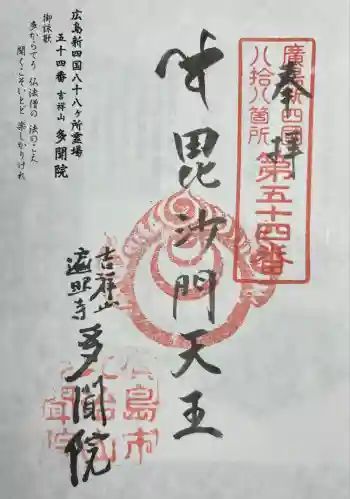 奉拝
廣島新四國
八拾八箇所
第五十四番
毘沙門天王
吉祥山
遍照寺
多聞院
広島新四国八十八ヶ所霊場
五十四番 吉祥山 多聞院
御詠歌
多からてう 仏法僧の 法のこえ
聞くこそいとど 楽しかりけれ
廣島市